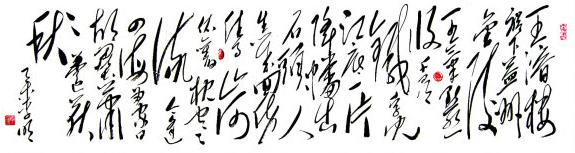 王濬楼
船下益州
金陵
王气黯然
收千寻
铁锁沉
江底一片
降幡出
石头人
世几回伤
往事山形
依旧枕寒
流今逢
四海为家日
故垒萧
萧芦荻
秋